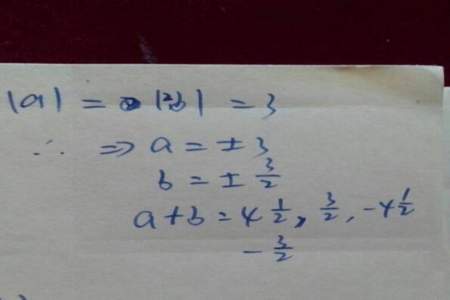 |a| = |2b| = 3
∴ ⇒ a = ±3
b = ± 3/2
a+b = 4 1/2, 3/2, -4 1/2
- 3/2